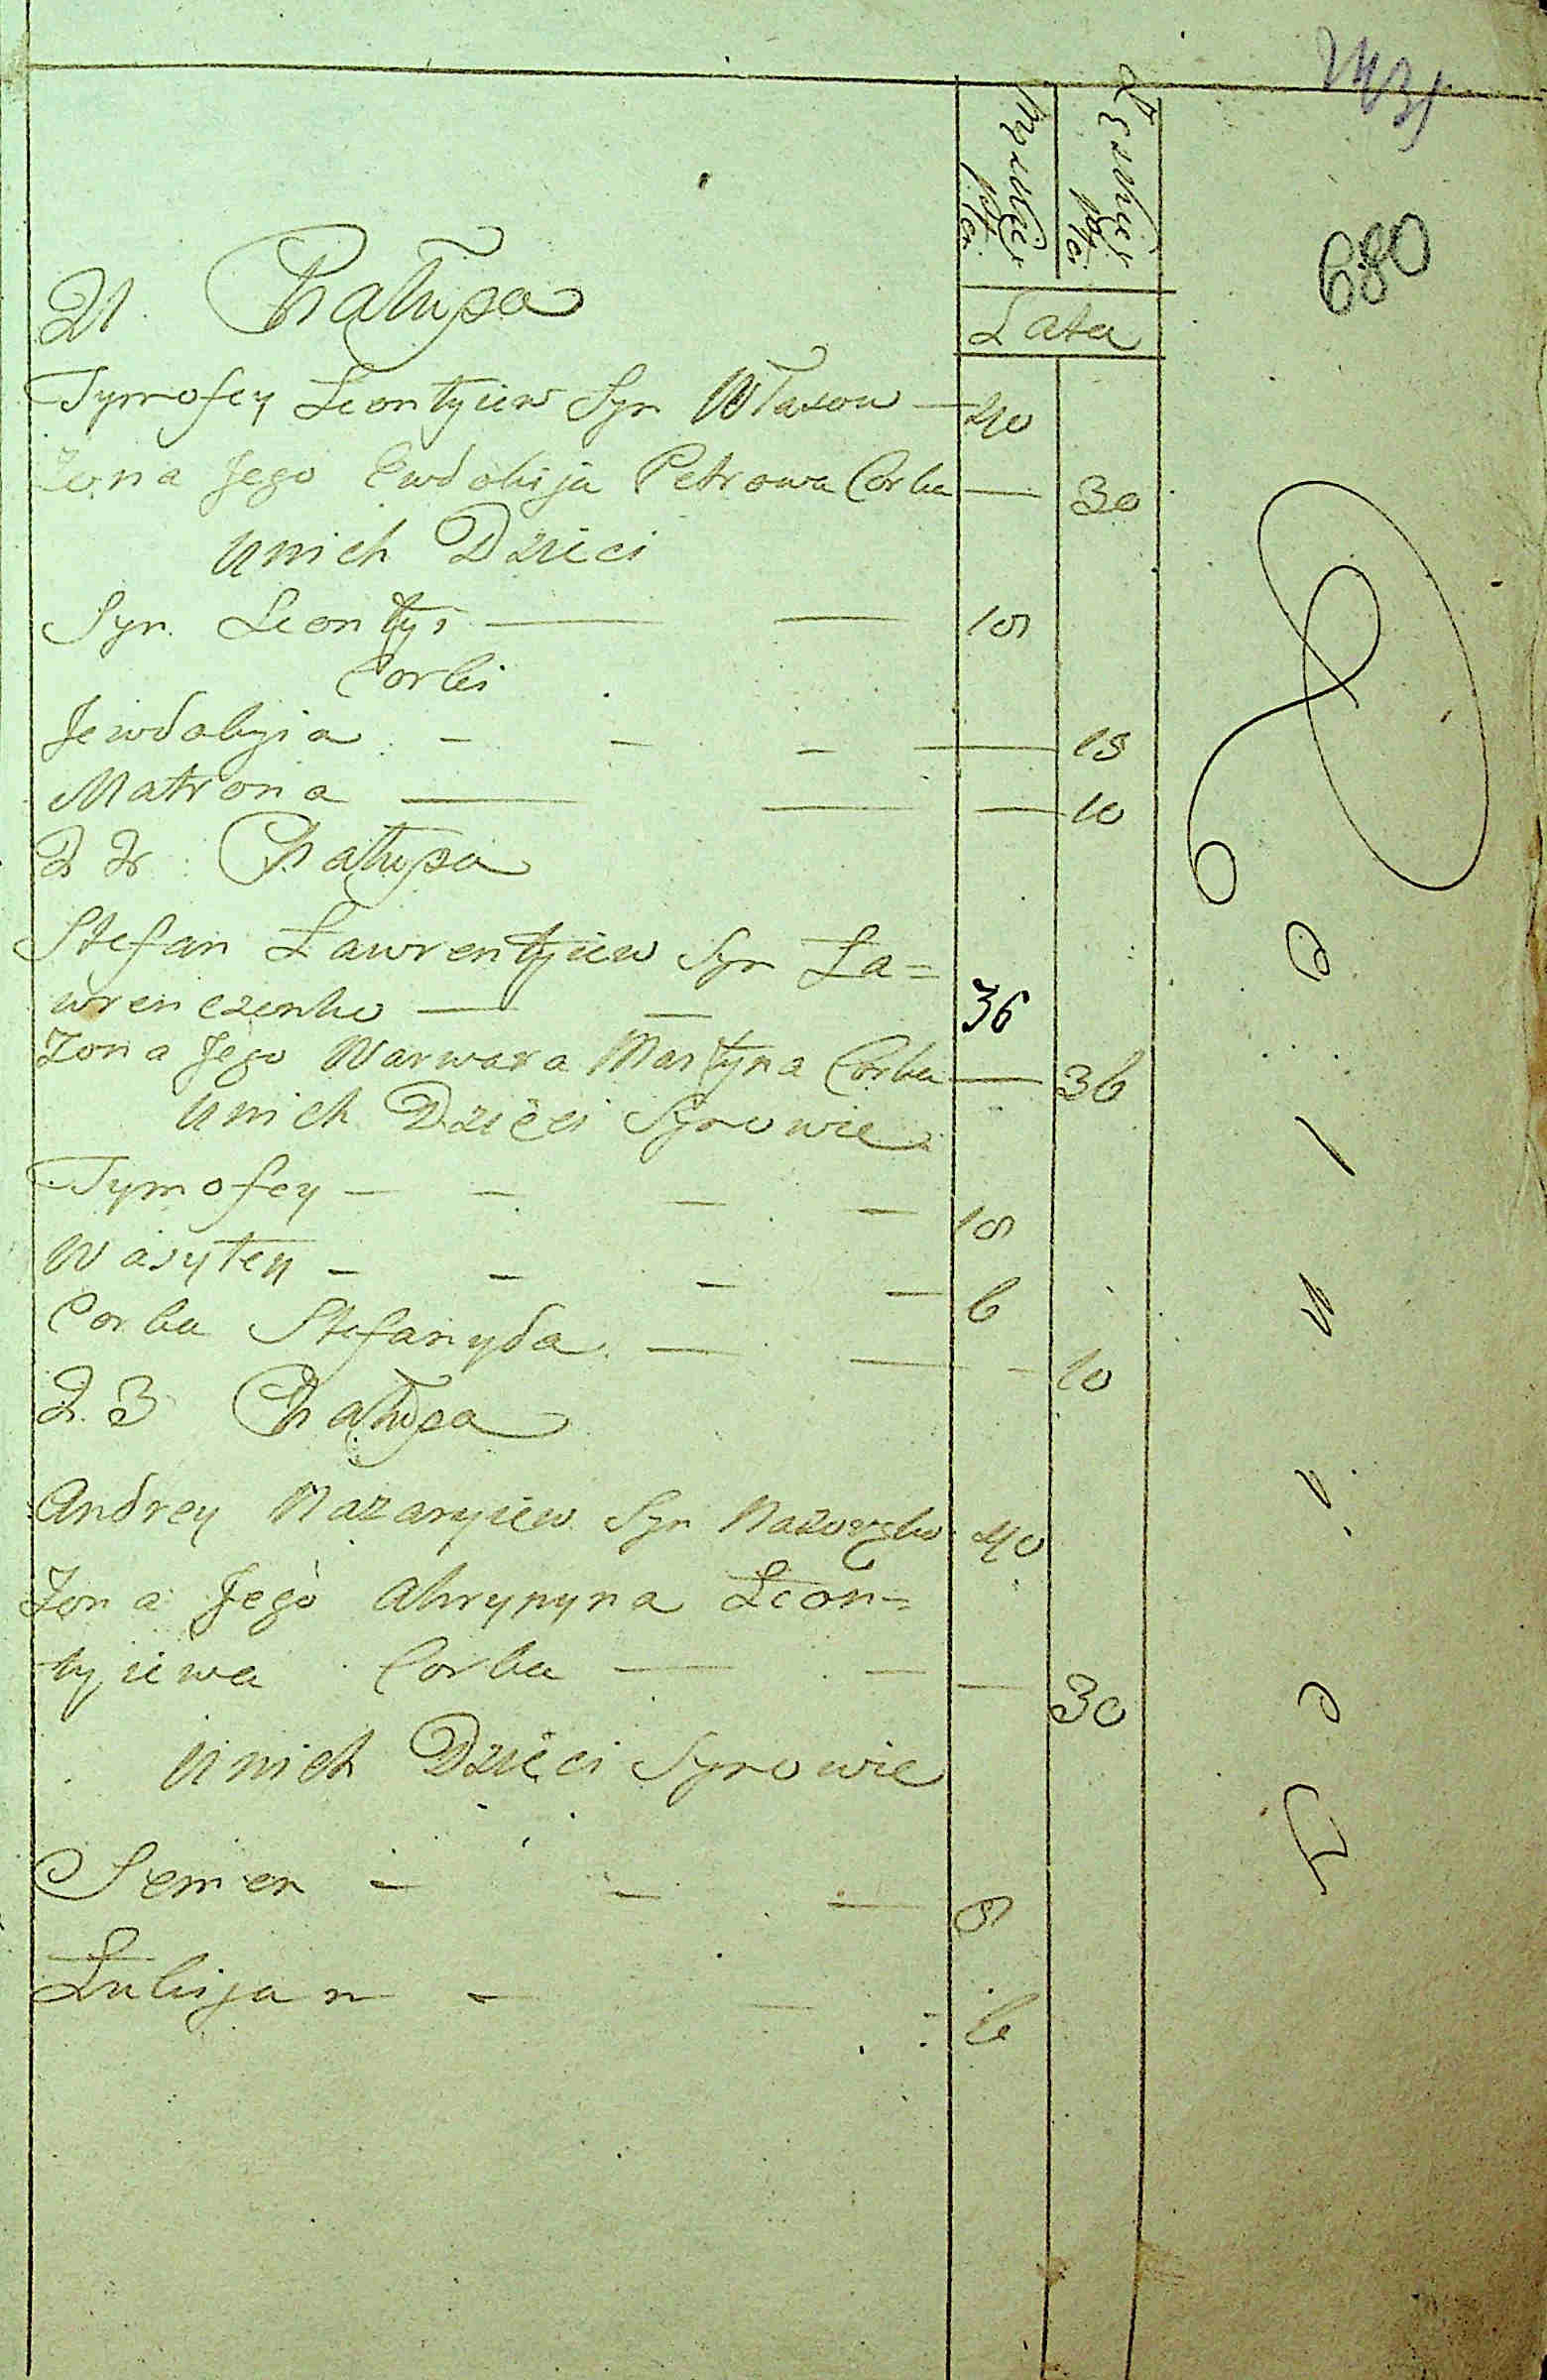 680
Męskiey płci
Żeńskiey płci
Lata
21. Chałupa
Tymofey Leontyiew Syn Własow — 40
Zona Jego Ewdokija Petrowa Corka — 30
U nich Dzieci
Syn Leontyi — — 18
Corki
Jewdokyia - - - — 15
Matrona — — — 10
22. Chałupa
Stefan Ławrentyiew Syn Ła=
wrenczenko — — 36
Zona Jego Warwara Martyna Corka — 36
U nich Dzieci Synowie
Tymofey - - - - 18
Wasyłey - - - - 6
Corka Stefanyda — — - 10
23 Chałupa
Andrey Nazaryiew Syn 40
Zona Jego Ahrypyna Leon=
tyiewa Corka — — — 30
U nich Dzieci Synowie
Semen - - — 8
Łukijan - - - 6